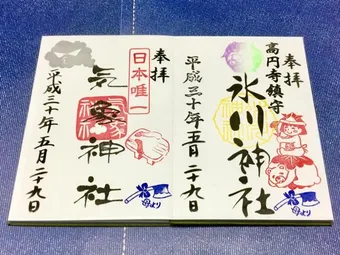 奉拝
高円寺鎮守
氷川神社
平成三十年五月二十九日
奉拝
日本唯一
気象神社
平成三十年五月二十九日